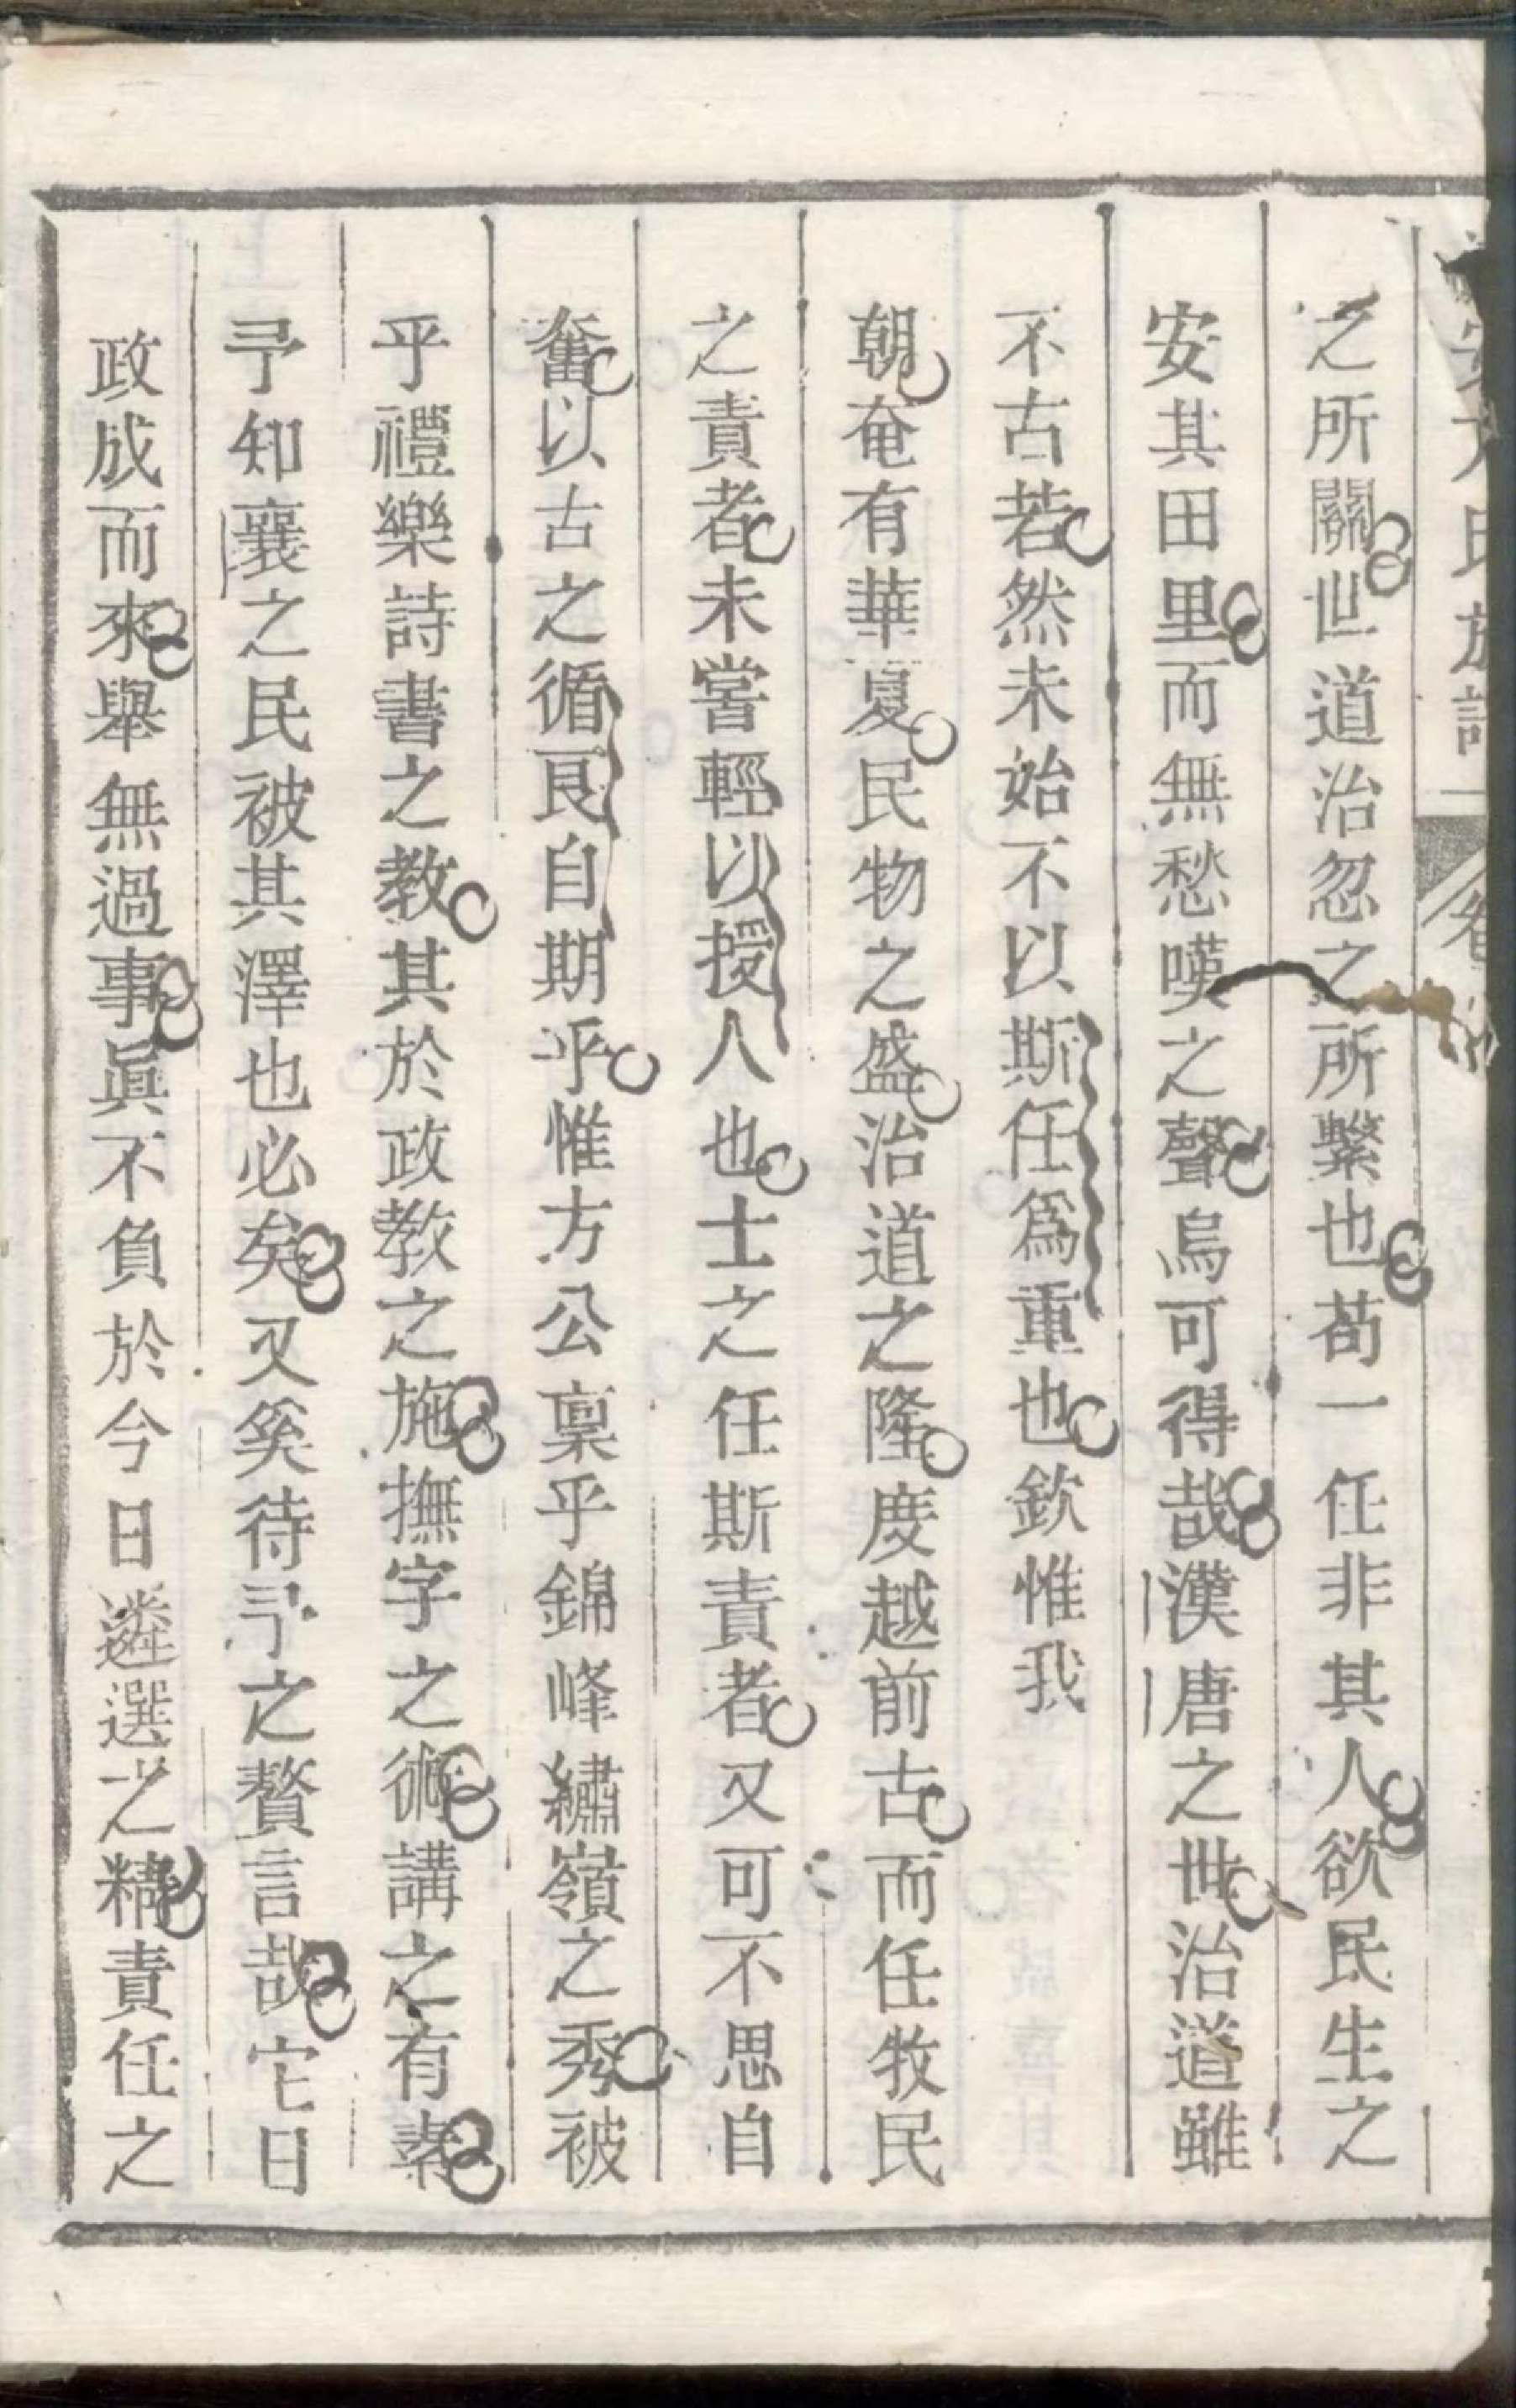 氏族譜
卷
之所關世道治忽之所繫也苟一任非其人欲民生之
安其田里而無愁嘆之聲烏可得哉漢唐之世治道雖
不古若然未始不以斯任爲重也欽惟我
朝奄有華夏民物之盛治道之隆度越前古而任牧民
之責者未嘗輕以授人也士之任斯責者又可不思自
奮以古之循良自期乎惟方公稟乎錦峰繡嶺之秀被
乎禮樂詩書之教其於政教之施撫字之術講之有素
予知襄之民被其澤也必矣又奚待予之贅言哉它日
政成而來舉無過事眞不負於今日遴選之精責任之